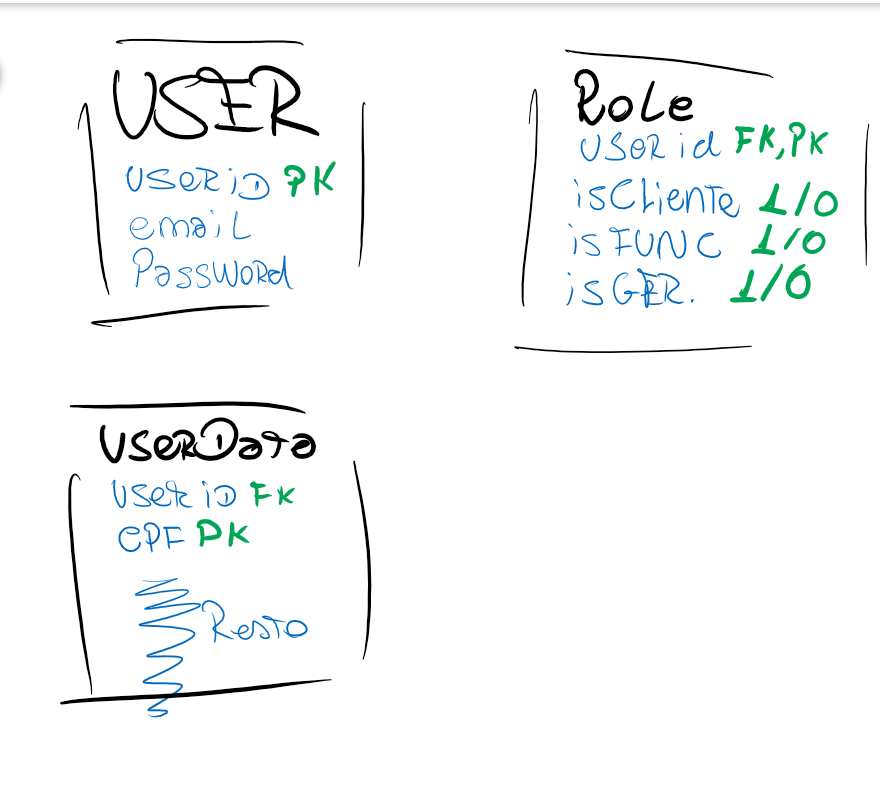 USER
USERiD PK
email
PassWORd
Role
USER id FK,PK
isCLiente 1/0
isFUNC 1/0
isGER. 1/0
USERData
USER iD FK
CPF PK
Resto